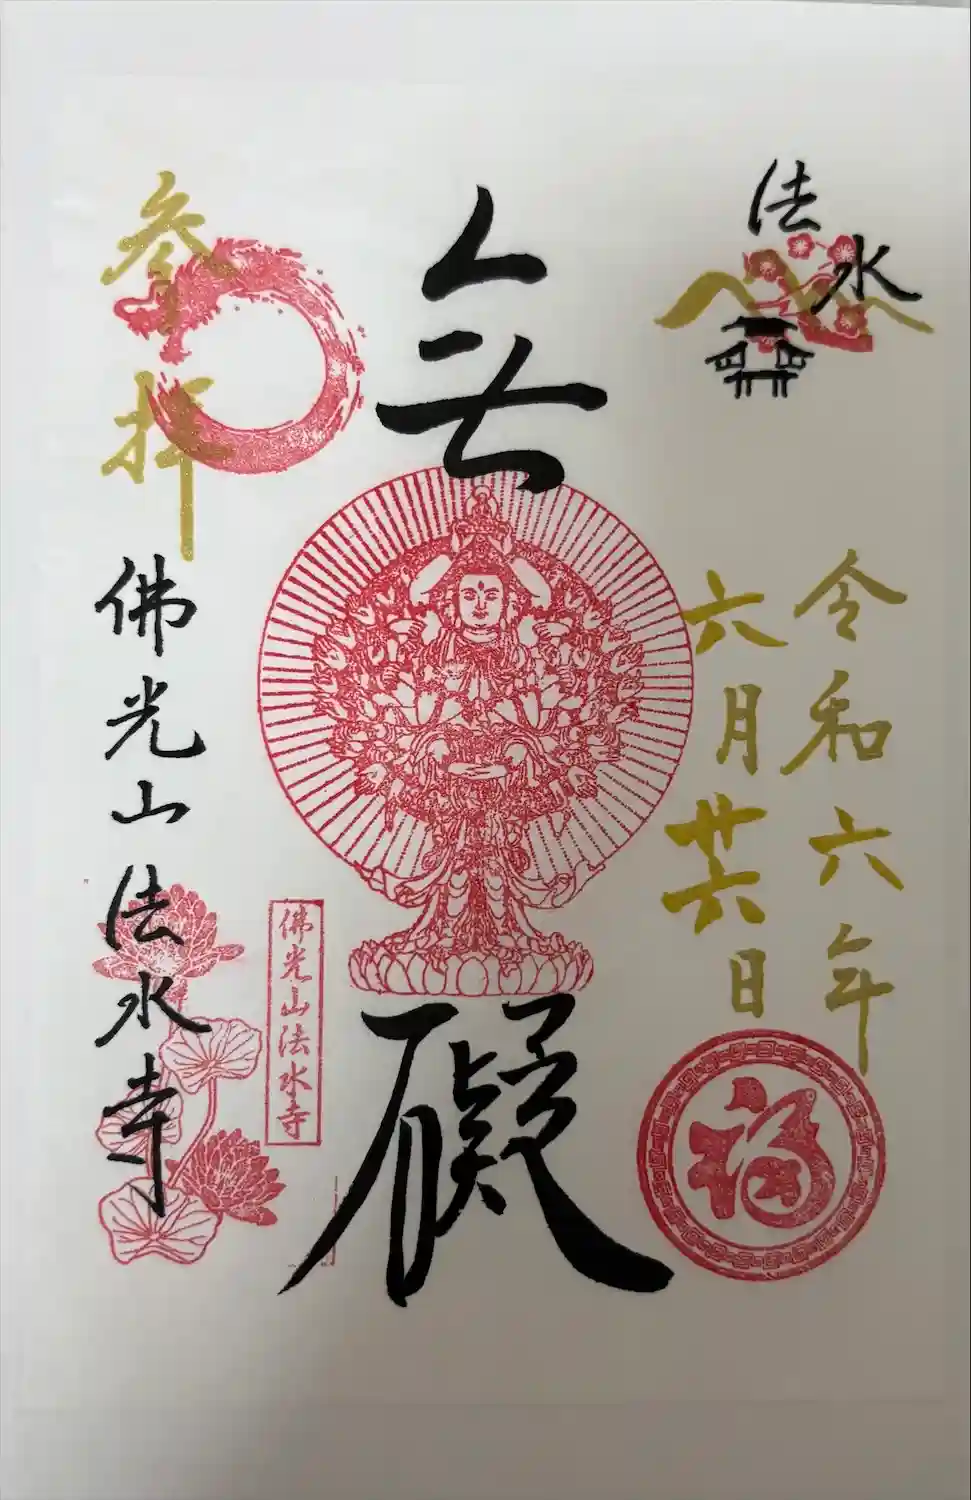 法水
令和六年
六月廿六日
福
無礙
佛光山法水寺
参拝
佛光山法水寺